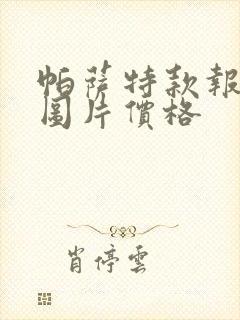 帕萨特款報
圖片價格
肖停雲